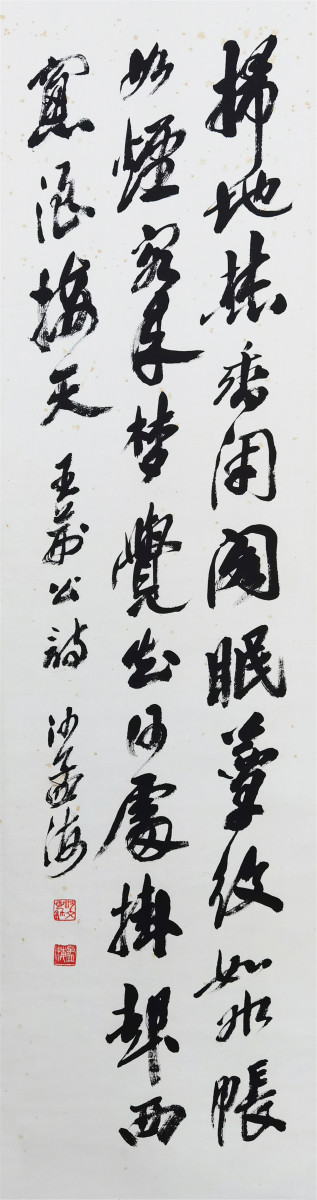 掃地焚香閉閣眠簟紋如水帳
如煙客来梦覺知何處掛起西
窻浪接天 王荊公詩 沙孟海